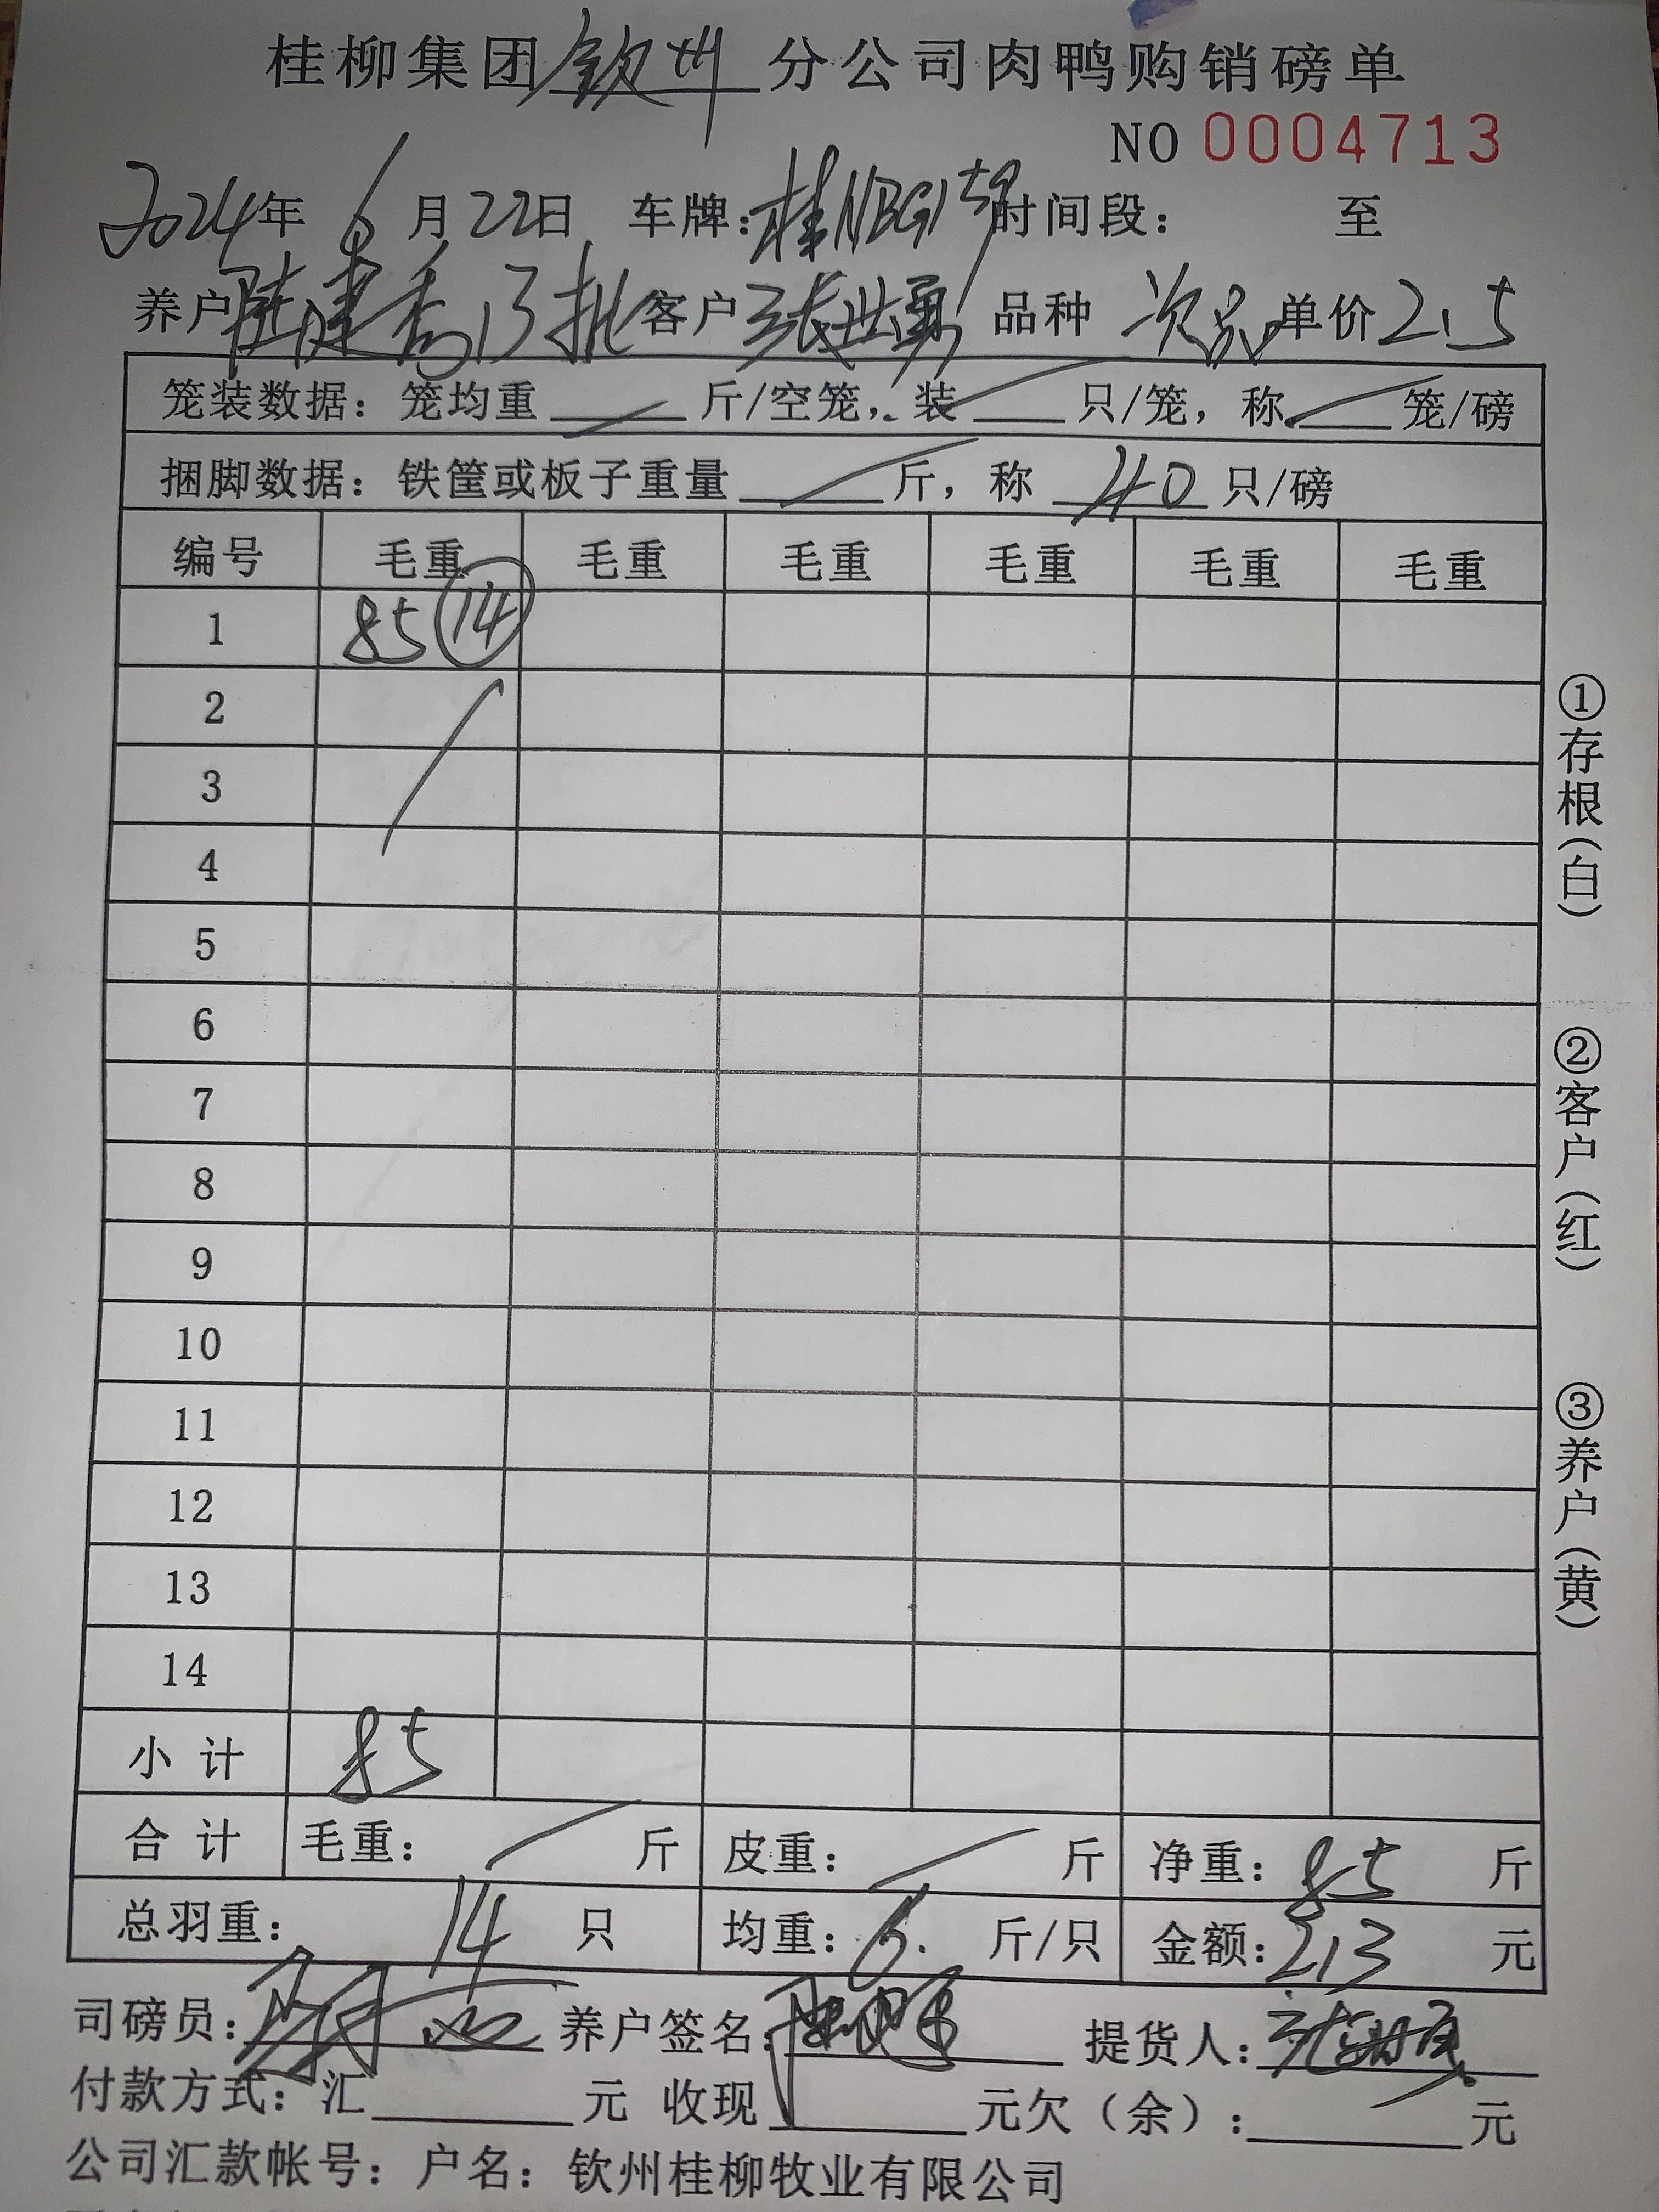 桂柳集团钦州分公司肉鸭购销磅单
NO 0004713
2024年 6月22日 车牌: 时间段: 至
养户陆建香13批客户张世勇 品种 次品 单价2.5
笼装数据: 笼均重 斤/空笼, 装 只/笼, 称 笼/磅
捆脚数据: 铁筐或板子重量 斤, 称 40 只/磅
编号 毛重 毛重 毛重 毛重 毛重 毛重
1 85 14
2
3
4
5
6
7
8
9
10
11
12
13
14
小计 85
合计 毛重: 斤 皮重: 斤 净重: 85 斤
总羽重: 14 只 均重: 6. 斤/只 金额: 213 元
司磅员: 养户签名: 提货人:
付款方式: 汇 元 收现 元欠(余): 元
公司汇款帐号: 户名: 钦州桂柳牧业有限公司
①存根(白)
②客户(红)
③养户(黄)